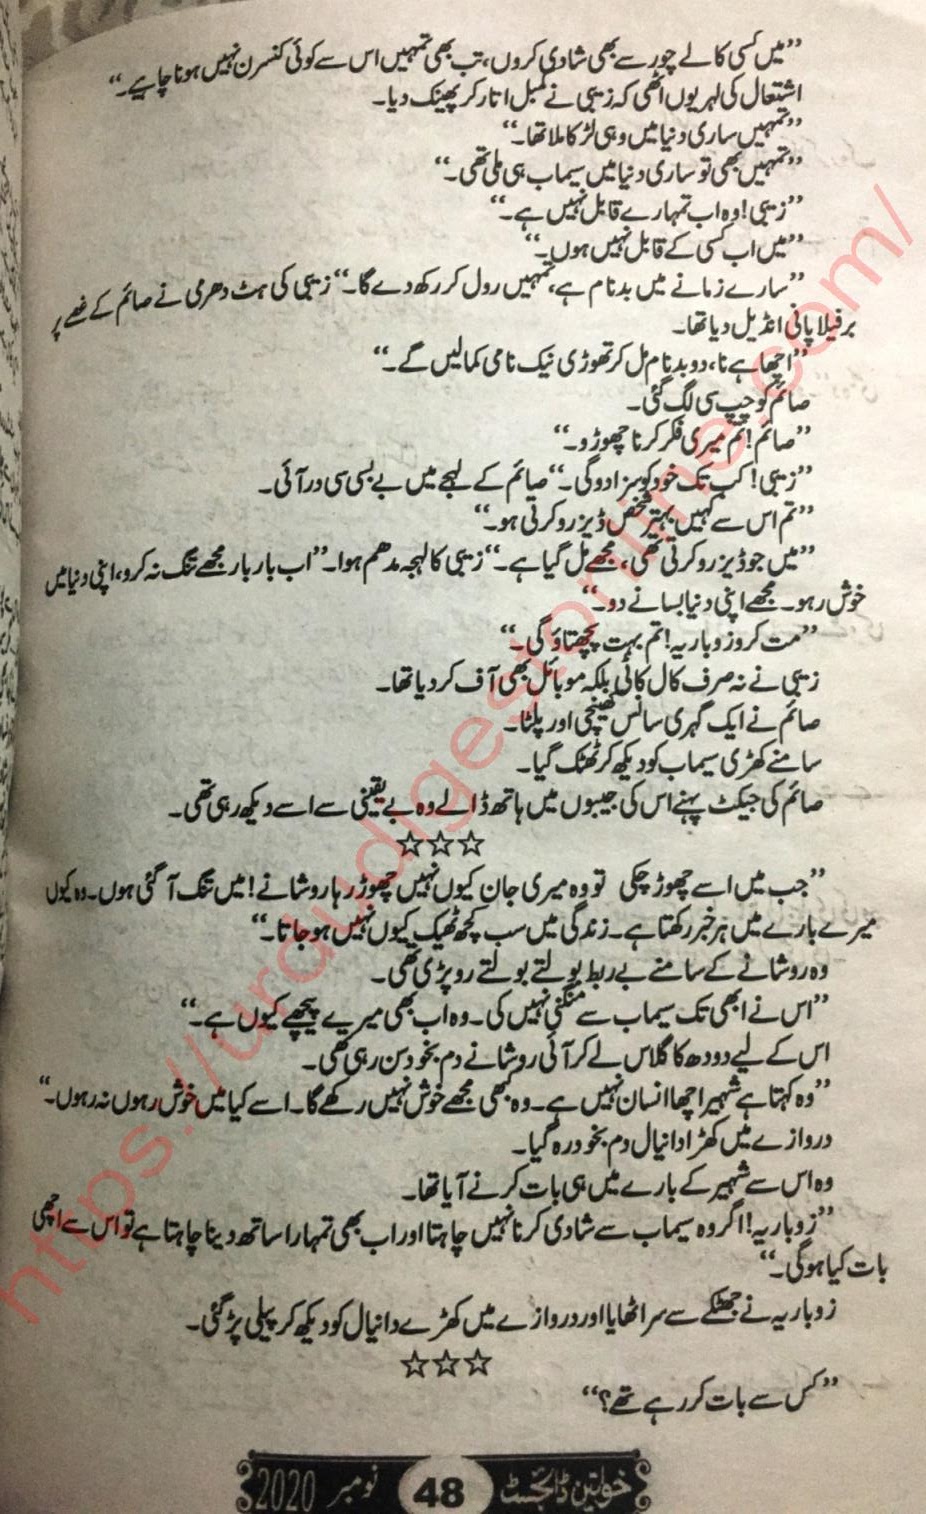 ”میں کسی کالے چور سے بھی شادی کروں، تب بھی تمہیں اس سے کوئی کنسرن نہیں ہونا چاہیے۔“
اشتعال کی لہر یوں اٹھی کہ زیبی نے کمبل اتار کر پھینک دیا۔
”تمہیں ساری دنیا میں وہی لڑکا ملا تھا۔“
”تمہیں بھی تو ساری دنیا میں سیماب ہی ملی تھی۔“
”زیبی! وہ اب تمہارے قابل نہیں ہے۔“
”میں اب کسی کے قابل نہیں ہوں۔“
”سارے زمانے میں بدنام ہے، تمہیں رول کر رکھ دے گا۔“ زیبی کی ہٹ دھرمی نے صائم کے غصے پر
برفیلا پانی انڈیل دیا تھا۔
”اچھا ہے نا، دو بدنام مل کر تھوڑی نیک نامی کمالیں گے۔“
صائم کو چپ سی لگ گئی۔
”صائم! تم میری فکر کرنا چھوڑ دو۔“
”زیبی! کب تک خود کو سزا دو گی۔“ صائم کے لہجے میں بے بسی سی در آئی۔
”تم اس سے کہیں بہتر شخص ڈیزرو کرتی ہو۔“
”میں جو ڈیزرو کرتی تھی، مجھے مل گیا ہے۔“ زیبی کا لہجہ مدھم ہوا۔ ”اب بار بار مجھے تنگ نہ کرو، اپنی دنیا میں
خوش رہو۔ مجھے اپنی دنیا بسانے دو۔“
”مت کرو زوباریہ! تم بہت پچھتاؤ گی۔“
زیبی نے نہ صرف کال کاٹی بلکہ موبائل بھی آف کر دیا تھا۔
صائم نے ایک گہری سانس کھینچی اور پلٹا۔
سامنے کھڑی سیماب کو دیکھ کر ٹھٹک گیا۔
صائم کی جیکٹ پہنے اس کی جیبوں میں ہاتھ ڈالے وہ بے یقینی سے اسے دیکھ رہی تھی۔
☆☆☆
”جب میں اسے چھوڑ چکی تو وہ میری جان کیوں نہیں چھوڑ رہا روشانے! میں تنگ آ گئی ہوں۔ وہ کیوں
میرے بارے میں ہر خبر رکھتا ہے۔ زندگی میں سب کچھ ٹھیک کیوں نہیں ہو جاتا۔“
وہ روشانے کے سامنے بے ربط بولتے بولتے رو پڑی تھی۔
”اس نے ابھی تک سیماب سے منگنی نہیں کی۔ وہ اب بھی میرے پیچھے کیوں ہے۔“
اس کے لیے دودھ کا گلاس لے کر آئی روشانے دم بخود سن رہی تھی۔
”وہ کہتا ہے شہیر اچھا انسان نہیں ہے۔ وہ کبھی مجھے خوش نہیں رکھے گا۔ اسے کیا میں خوش رہوں نہ رہوں۔“
دروازے میں کھڑا دانیال دم بخود رہ گیا۔
وہ اس سے شہیر کے بارے میں ہی بات کرنے آیا تھا۔
”زوباریہ! اگر وہ سیماب سے شادی کرنا نہیں چاہتا اور اب بھی تمہارا ساتھ دینا چاہتا ہے تو اس سے اچھی
بات کیا ہو گی۔“
زوباریہ نے جھٹکے سے سر اٹھایا اور دروازے میں کھڑے دانیال کو دیکھ کر پیلی پڑ گئی۔
☆☆☆
”کس سے بات کر رہے تھے؟“
خواتین ڈائجسٹ 48 نومبر 2020
https://urdudigestonline.com/